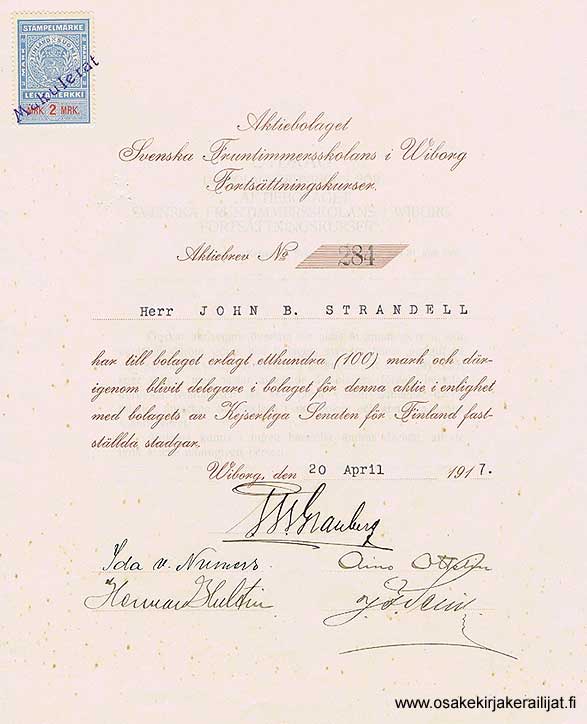 STÄMPELMÄRKE
FINLAND SUOMI
LEIMAMERKKI
MRK. 2 MRK.
Makulerat
Aktiebolaget
Svenska Fruntimmersskolans i Wiborg
Fortsättningskurser.
Aktiebrev No 284
Herr JOHN B. STRANDELL
har till bolaget erlagt etthundra (100) mark och där-
igenom blivit delegare i bolaget för denna aktie i enlighet
med bolagets av Kejserliga Senaten för Finland fast-
ställda stadgar.
Wiborg, den 20 April 1917.
Ida v. Numers
Herman Hultin
www.osakekirjakerailijat.fi